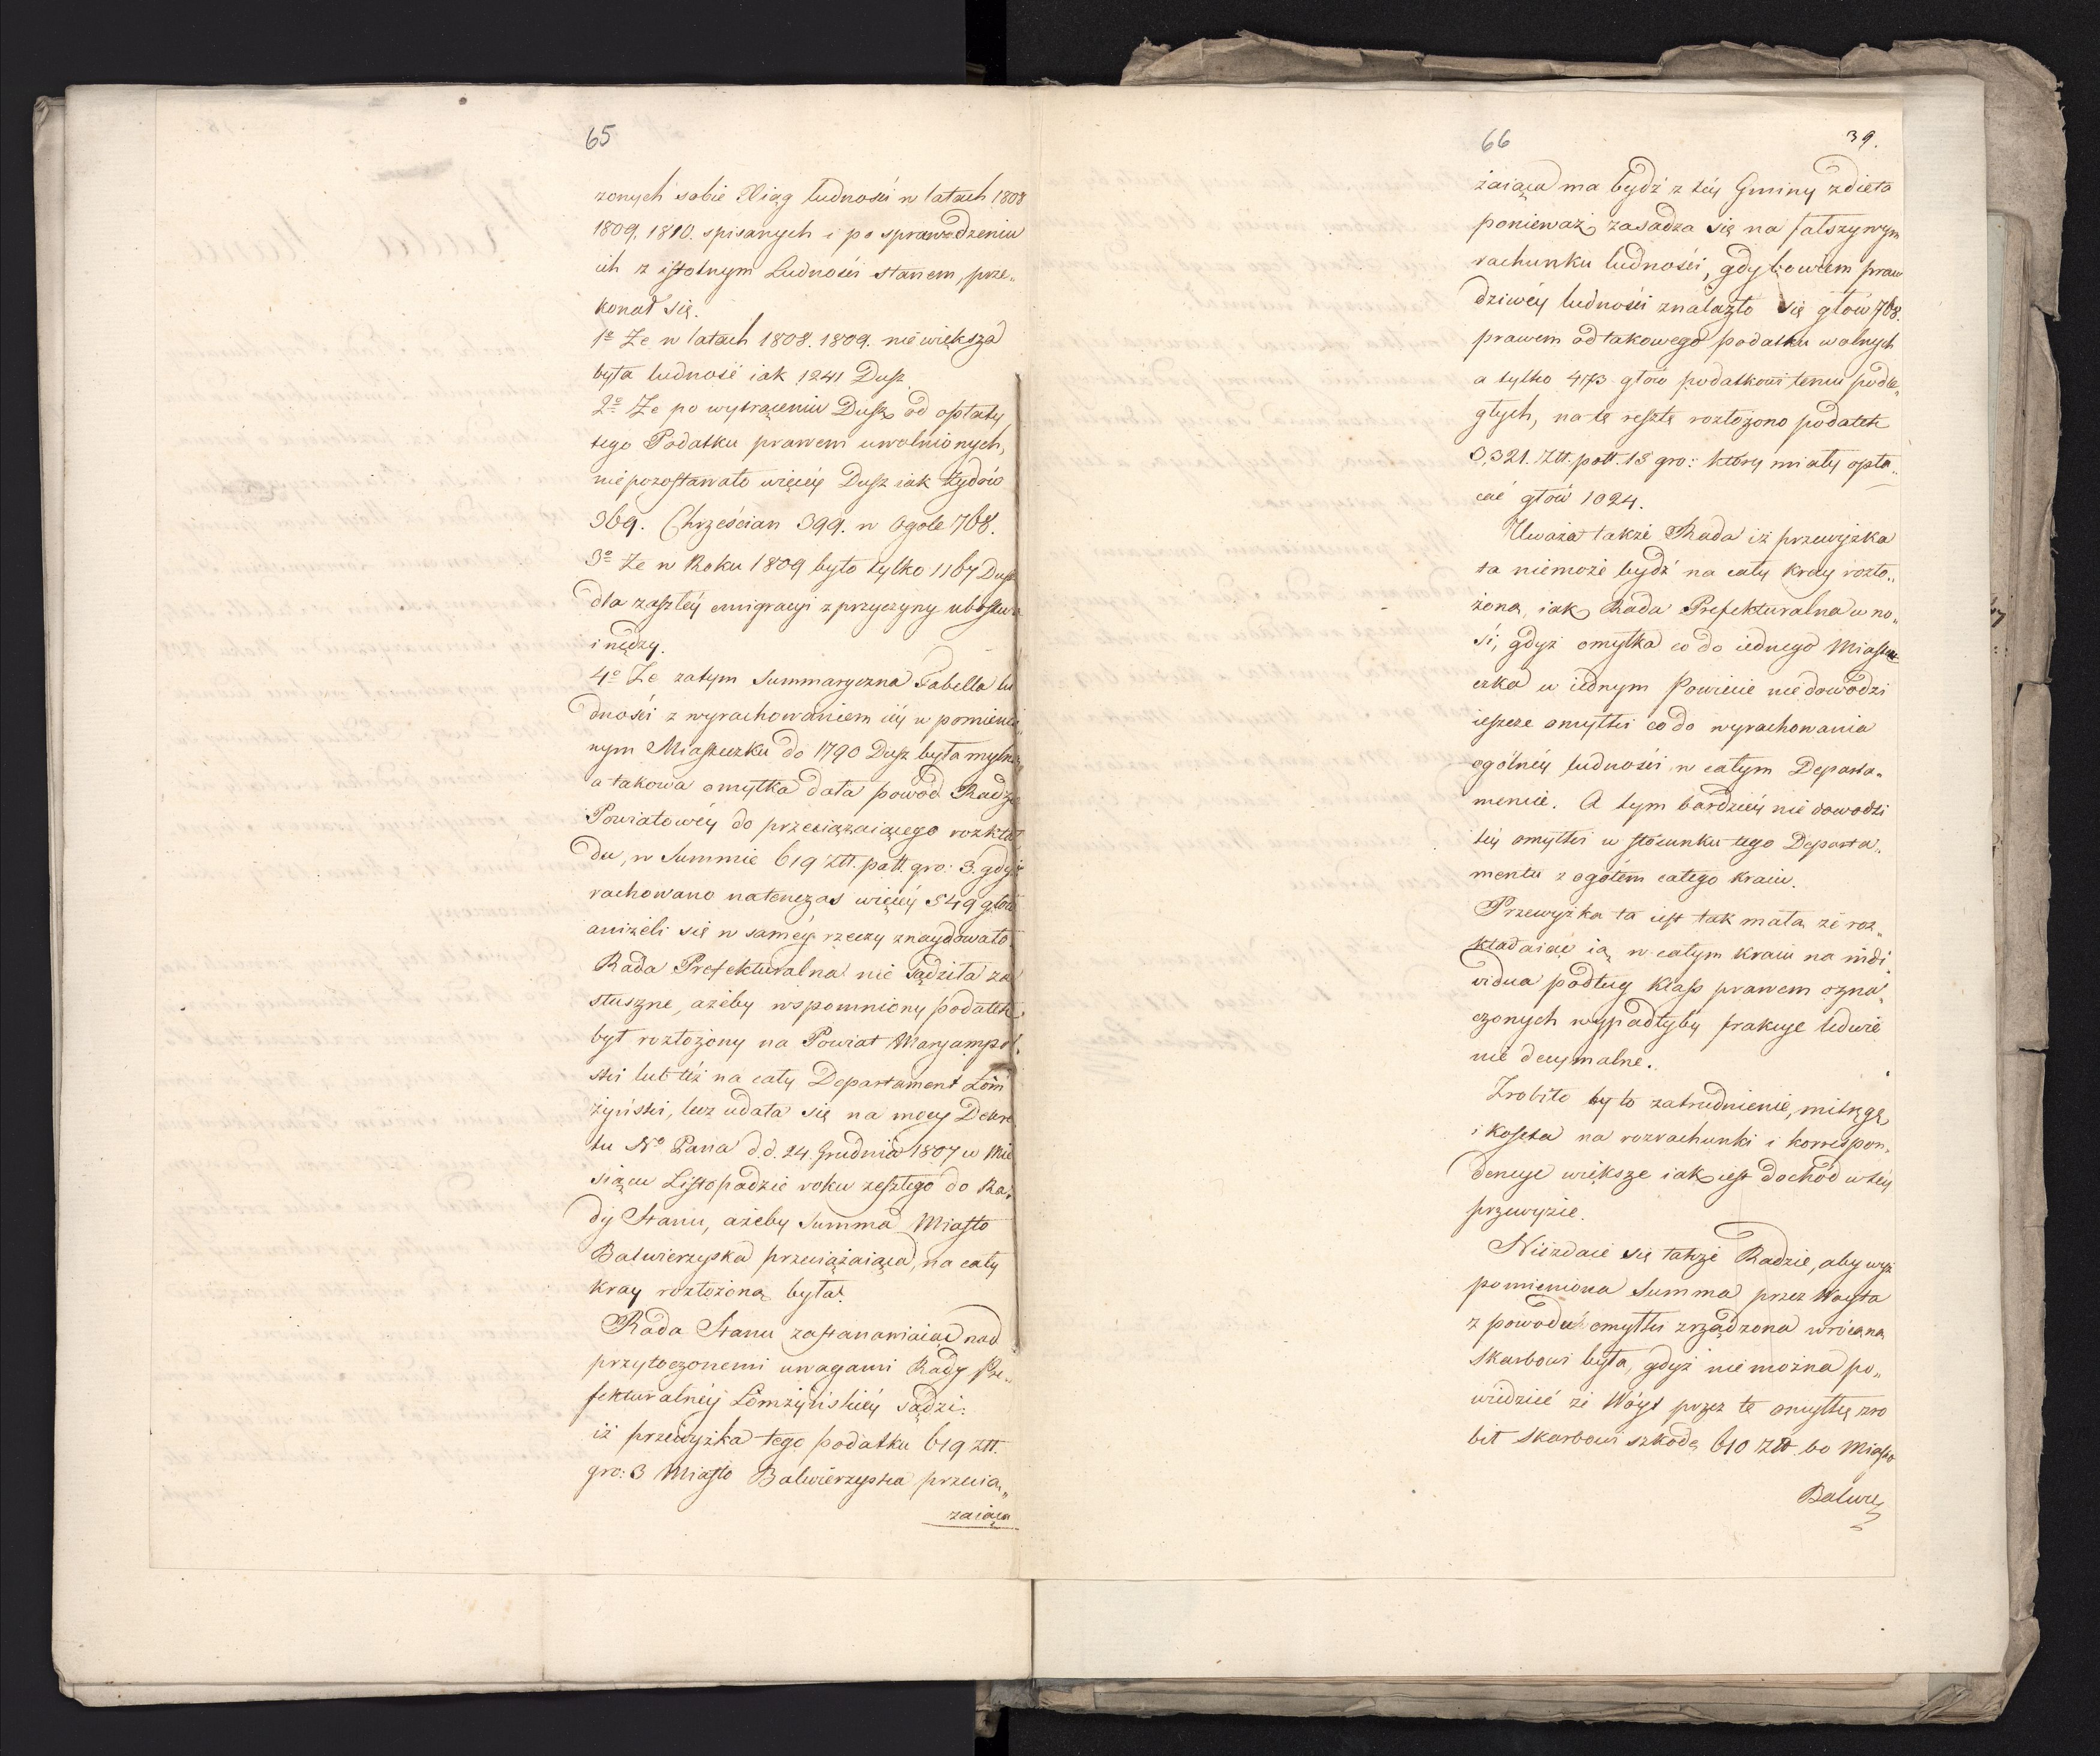 65
zonych sobie Xiąg ludności w latach 1808
1809. 1810. spisanych i po sprawdzeniu
ich z istotnym Ludności stanem, prze„
konał się.
1o Ze w latach 1808. 1809. niewiększa
była ludność iak 1241 Dusz
2o Ze po wytrąceniu Dusz od opłaty
tego Podatku prawem uwolnionych,
niepozostawało więcéy Dusz iak Żydów
369. Chrześcian 399. w Ogóle 768.
3o Ze w Roku 1809 było tylko 1167 Dusz
dla zaszłéy emigracyi z przyczyny ubostwa
i nędzy.
4o Ze zatym Summaryczna Tabella lu
dności z wyrachowaniem iéy w pomienio„
nym Miasteczku do 1790 Dusz była mylną
a takowa omyłka dała powód Radzie
Powiatowéy do przeciążaiącego rozkła
du, w Summie 619 złł. poll. gro: 3. gdyż
rachowano natenczas więcéy 549 głów
aniżeli się w saméy rzeczy znaydowało.
Rada Prefekturalna nie sądziła za
słuszne, ażeby wspomniony podatek
był rozłożony na Powiat Maryampol„
ski lub téż na cały Departament Łom
żyński, lecz udała się na mocy Dekre
tu No Pana d.d. 24. Grudnia 1807 w Mie
siącu Listopadzie roku zeszłego do Ra„
dy Stanu, ażeby Summa Miasto
Balwierzyska przeciążaiąca, na cały
kray rozłożoną była.
Rada Stanu zastanawiaiąc nad
przytoczonemi uwagami Rady Pre„
fekturalnéy Łomżyńskiéy sądzi:
iż przewyżka tego podatku 619 złł.
gro: 3 Miasto Balwierzyska przecią„
żaiąca
66
39.
żaiąca ma bydź z téy Gminy zdięta
ponieważ zasadza się na fałszywym
rachunku ludności, gdy bowiem praw
dziwéy ludności znalazło się głów 768.
prawem od takowego podatku wolnych
a tylko 473 głów podatkowi temu podle„
głych, na tę resztę rozłożono podatek
3,321. Złł. poll. 18 gro: który miały opła„
cać głów 1024.
Uważa także Rada iż przewyżka
ta niemoże bydź na cały kray rozło„
żoną, iak Rada Prefekturalna wno„
si, gdyż omyłka co do iednego Miaste
czka w iednym Powiecie nie dowodzi
ieszcze omyłki co do wyrachowania
ogólnéy ludności w całym Departa„
mencie. A tym bardziéy nie dowodzi
téy omyłki w stosunku tego Departa„
mentu z ogółem całego kraiu.
Przewyżka ta iest tak mała że roz„
kładaiąc ią w całym kraiu na indi„
vidua podług klass prawem ozna„
czonych wypadłyby frakcye ledwie
nie decymalne.
Zrobiło by to zatrudnienie, mitręgę,
i koszta na rozrachunki i korrespon„
dencye większe iak iest dochód w téy
przewyżce.
Niezdaie się także Radzie, aby wyż
pomieniona Summa przez Wóyta
z powodu omyłki zrządzona wróconą
Skarbowi była, gdyż nie można po„
wiedzieć że Wóyt przez tę omyłkę zro
bił Skarbowi szkodę 610 Złł. bo Miasto
Balwie